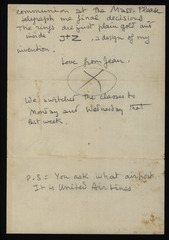 communion at the Mass. Please
telegraph me final decisions.
The rings are just plain gold and
inside J+Z . a design of my
invention.
Love from Jean.
We switched the classes to
Monday and Wednesday
last week.
P.S: You ask what airport
It is United Air Lines